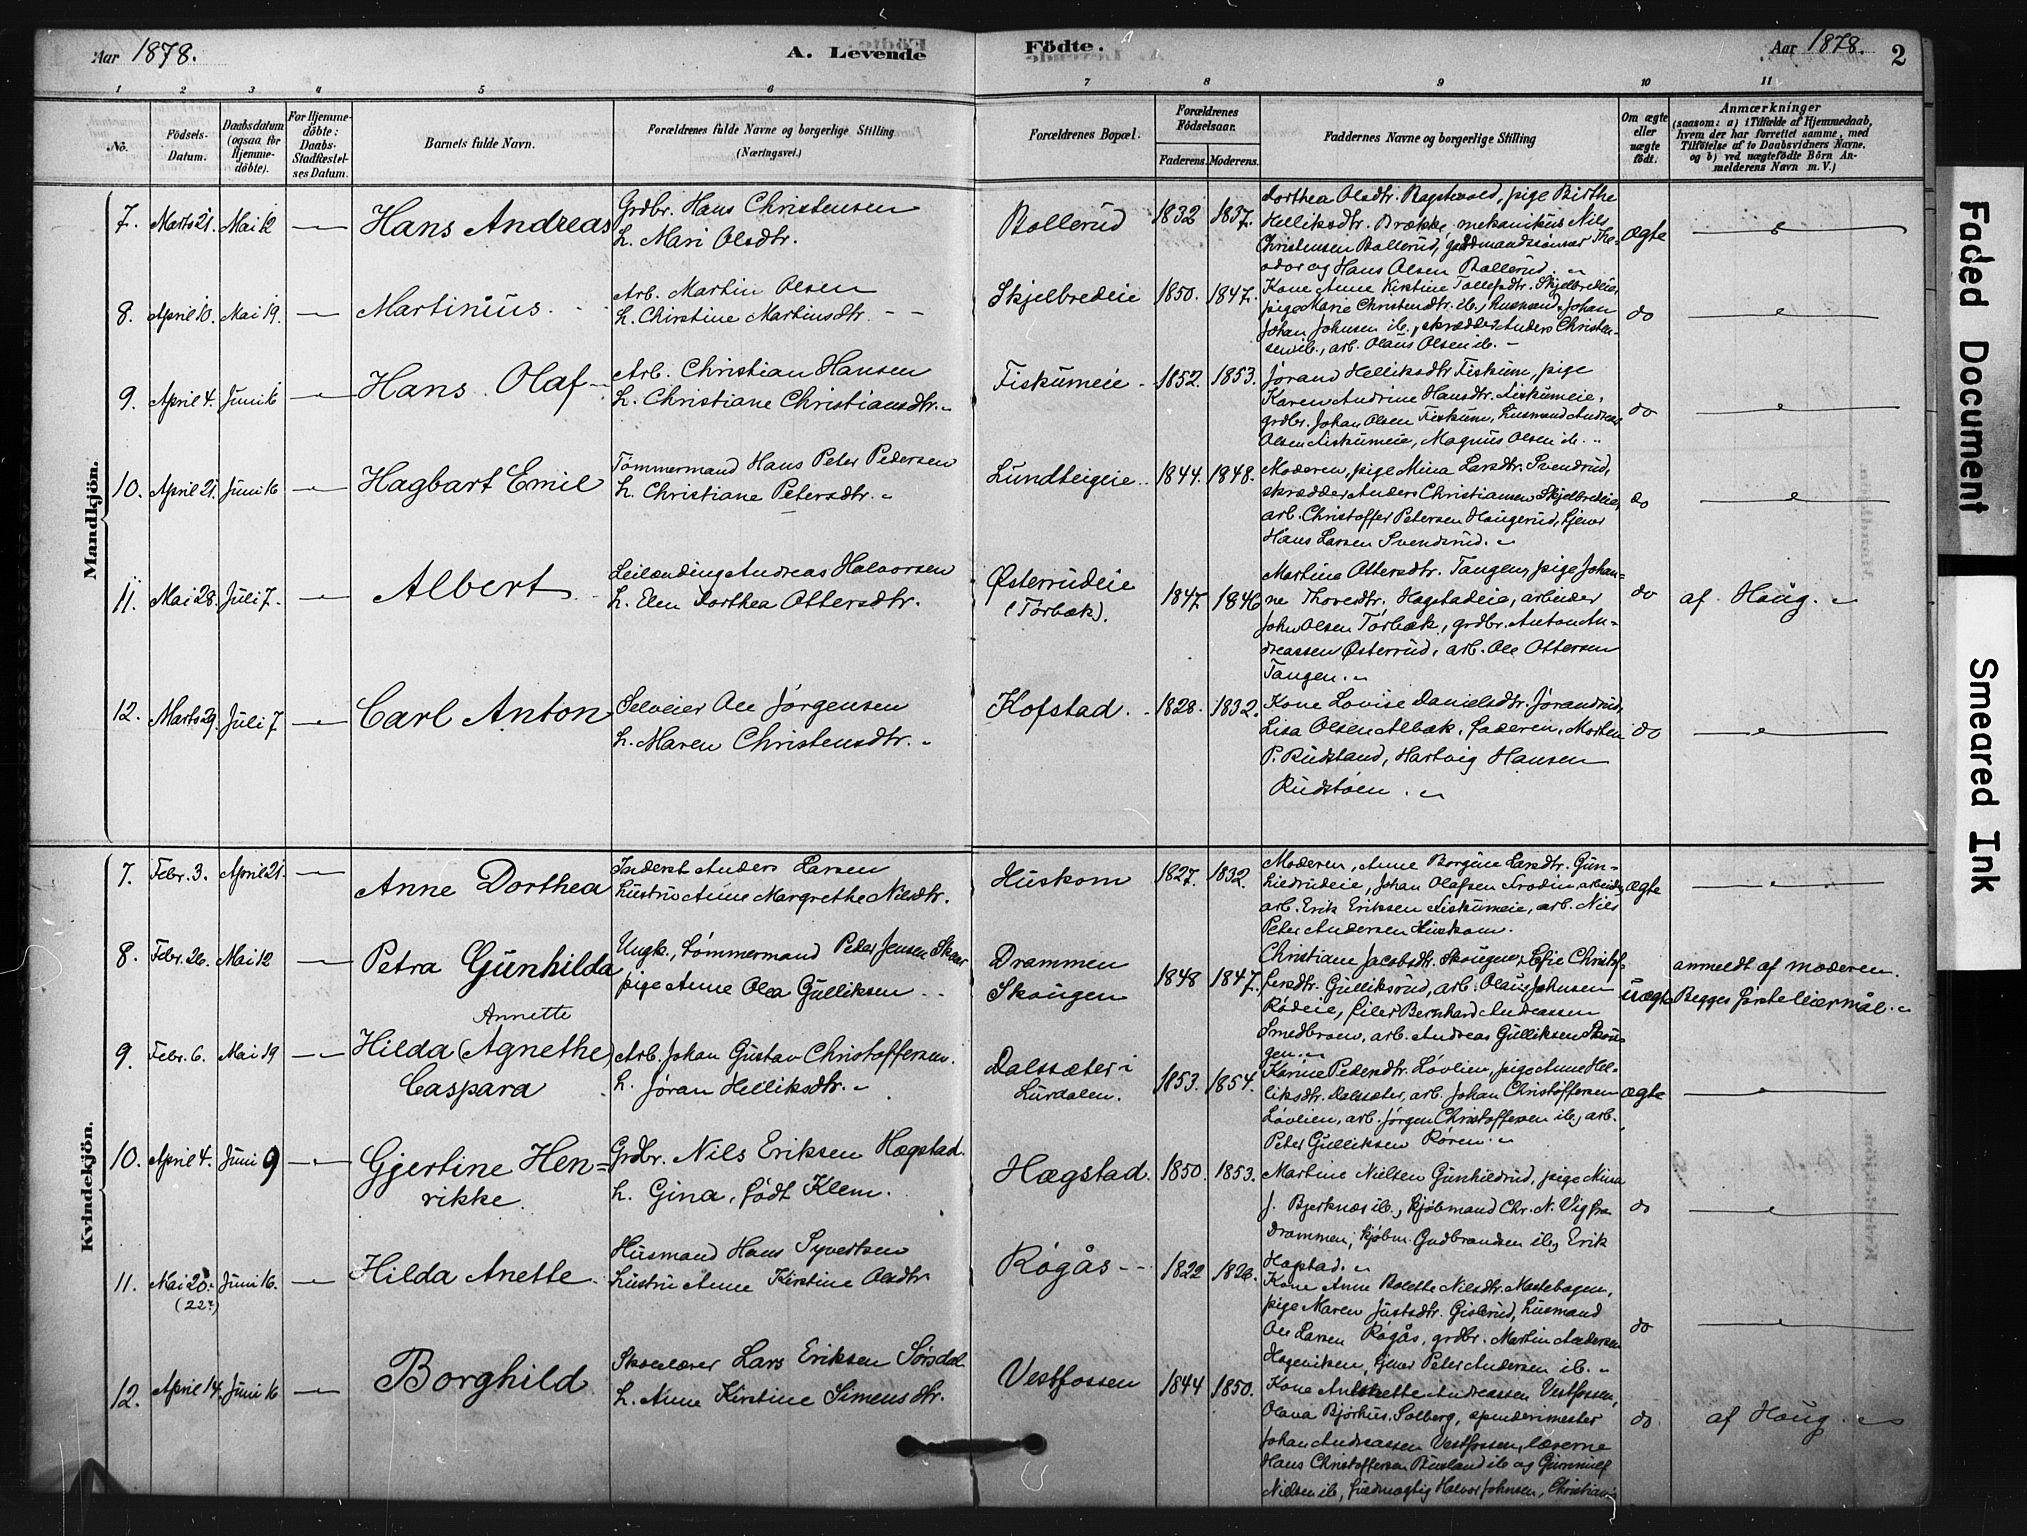 Aar 1878.
A. Levende
Födte.
Aar 1878.
2
1 2 3 4 5 6 7 8 9 10 11
No.
Födsels-Datum.
Daabsdatum (ogsaa for Hjemme-döbte).
For Hjemme-döbte: Daabs-Stadfæstel-ses Datum.
Barnets fulde Navn.
Forældrenes fulde Navne og borgerlige Stilling
(Næringsvei.)
Forældrenes Bopæl.
Forældrenes Födselsaar.
Faderens. Moderens.
Faddernes Navne og borgerlige Stilling
Om ægte eller uægte födt.
Anmærkninger
(saasom: a) i Tilfælde af Hjemmedaab,
hvem der har forrettet samme, med
Tilföielse af to Daabsvidners Navne,
og b) ved uægtefödte Börn An-
melderens Navn m. V.)
Mandkjön.
7. Marts 21. Mai 12 — Hans Andreas
Grdbr. Hans Christensen
h. Mari Olsdtr.
Bollerud 1832 1837.
Dorthea Olsdtr. Bagstevold, pige Birthe
Helliksdtr. Brække, mekanikus Nils
Christensen Bollerud, gaardmandssönner The-
odor og Hans Olsen Bollerud.
ægte
8. April 10. Mai 19. — Martinius.
Arb. Martin Olsen
h. Christine Martinsdtr. - -
Skjelbredeie 1850. 1847.
Kone Anne Kirstine Tollefsdtr. Skjelbredeie,
pige Marie Christensdtr. ib., husmand Johan
Johan Johnsen ib., skrædder Anders Christen-
sen ib., arb. Olaus Olsen ib. -
do
9. April 4. Juni 6 — Hans Olaf
Arb. Christian Hansen
h. Christiane Christiansdtr.
Fiskumeie 1852. 1853.
Jørand Helliksdtr. Fiskum, pige
Karen Andrine Hansdtr. Fiskumeie,
grdbr. Johan Olsen Fiskum, husmand Andreas
Olsen Fiskumeie, Magnus Olsen ib.
do
10. April 21. Juni 16 — Hagbart Emil
Tömmermand Hans Peter Pedersen
h. Christiane Petersdtr.
Lundteigeie 1844. 1848.
Moderen, pige Mina Larsdtr. Svendrud,
skrædder Anders Christiansen Skjelbredeie,
arb. Christoffer Petersen Hougerud, tjener
Hans Larsen Svendsrud.
do
11. Mai 28. Juli 7. — Albert
Leilænding Andreas Halvorsen
h. Elen Dorthea Ottersdtr.
Østerrudeie
(Torbæk).
1847. 1846
Martine Ottersdtr. Tangen, pige Johan-
ne Thoresdtr. Hogstadeie, arbeider
John Olsen Torbæk, grdbr. Anton An-
dreassen Østerrud, arb. Ole Ottersen
Tangen.
do
af Houg.
12. Marts 29. Juli 7 — Carl Anton
Selveier Ole Jørgensen
h. Maren Christensdtr.
Kofstad. 1828. 1832.
Kone Lovise Danielsdtr. Jørandrud,
Lisa Olsen Albæk, faderen, Morten
P. Rudstand, Hartvig Hansen
Rudstøen.
do
Kvindekjön.
7. Febr. 3. April 21. — Anne Dorthea
Inderst Anders Larsen
hustru Anne Margrethe Nilsdtr.
Huskom 1827. 1832.
Moderen, Anne Borgine Larsdtr. Gun-
hildrudeie, Johan Olafsen Frodin, arbeider,
arb. Erik Eriksen Fiskumeie, arb. Nils
Peter Andersen Huskom.
ægte
8. Febr. 26. Mai 12 — Petra Gunhilda
Ungk., tømmermand Peter Jensen Skaar
pige Anne Olea Gulliksen
Drammen
Skougen
1848 1847.
Christiane Jacobsdtr. Skougen, Efie Christof-
fersdtr. Gulliksrud, arb. Olaus Johnsen
Rødeie, filer Bernhard Andreassen
Smedbroen, arb. Andreas Gulliksen Skou-
gen.
uægte
anmeldt af moderen.
Begges første leiermål.
9. Febr. 6. Mai 19 — Annette
Hilda (Agnethe)
Caspara
Arb. Johan Gustav Christoffersen.
h. Jøran Helliksdtr.
Dalssæter i
Lurdalen.
1853. 1854.
Karine Pedersdtr. Løvlien, pige Anne Hel-
liksdtr. Dalssæter, arb. Johan Christoffersen
Løvlien, arb. Jørgen Christoffersen ib., arb.
Peter Gulliksen Roren.
ægte
10. April 4. Juni 9 — Gjertine Hen-
rikke.
Grdbr. Nils Eriksen Hægstad.
h. Gina, født Klem.
Hægstad. 1850. 1853.
Martine Nielsen Gunhildrud, pige Mina
J. Bjerknæs ib., kjøbmand Chr. N. Vig fra
Drammen, kjøbm. Gudbrandsen ib., Erik
Hogstad.
do
11. Mai 20. (22?) Juni 16. — Hilda Anette
Husmand Hans Syvertsen
hustru Anne Kirstine Olsdtr
Røgås 1822 1826.
Kone Anne Bolette Nilsdtr. Mastebogen,
pige Maren Justsdtr. Gislerud, husmand
Ole Larsen Røgås, grdbr. Martin Andersen
Hogeniken, tjener Peter Andersen ib.
do
12. April 14. Juni 16 — Borghild
Skolelærer Lars Eriksen Sørsdal
h. Anne Kirstine Simensdtr.
Vestfossen 1844 1850.
Kone Antonette Andreassen Vestfossen,
Olava Bjørhus, Solberg, spinderimester
Johan Andreassen Vestfossen, lærerne
Hans Christoffersen Buxland ib. og Gunnulf
Nielsen ib., fuldmægtig Halvor Johnsen, Christiania
do
af Houg.
Faded Document
Smeared Ink